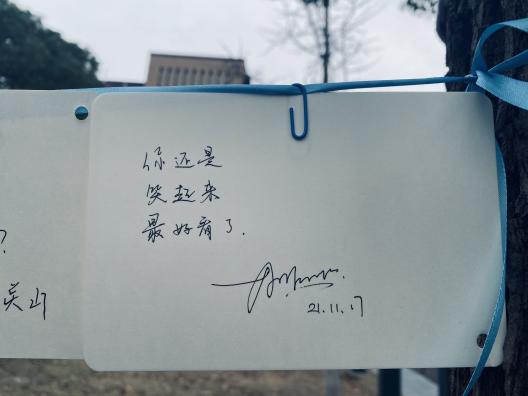 你还是
笑起来
最好看了.
21.11.17
?
吴山